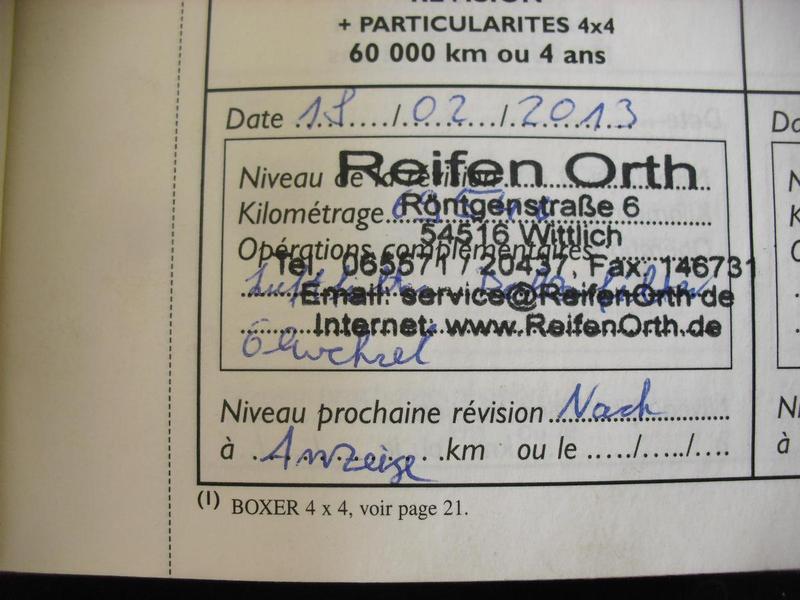 REVISION
+ PARTICULARITES 4x4
60 000 km ou 4 ans
Date ......../........./.2013
02
Reifen Orth
Niveau de la révision
Röntgenstraße 6
Kilométrage
54516 Wittlich
Opérations complémentaires
Tel. 065671 / 20437, Fax. 146731
Email: service@ReifenOrth.de
Internet: www.ReifenOrth.de
Ölwechsel
Niveau prochaine révision Nach
à Anzeige km ou le ...../...../....
(1) BOXER 4 x 4, voir page 21.
Da
N
K
O
Ni
à